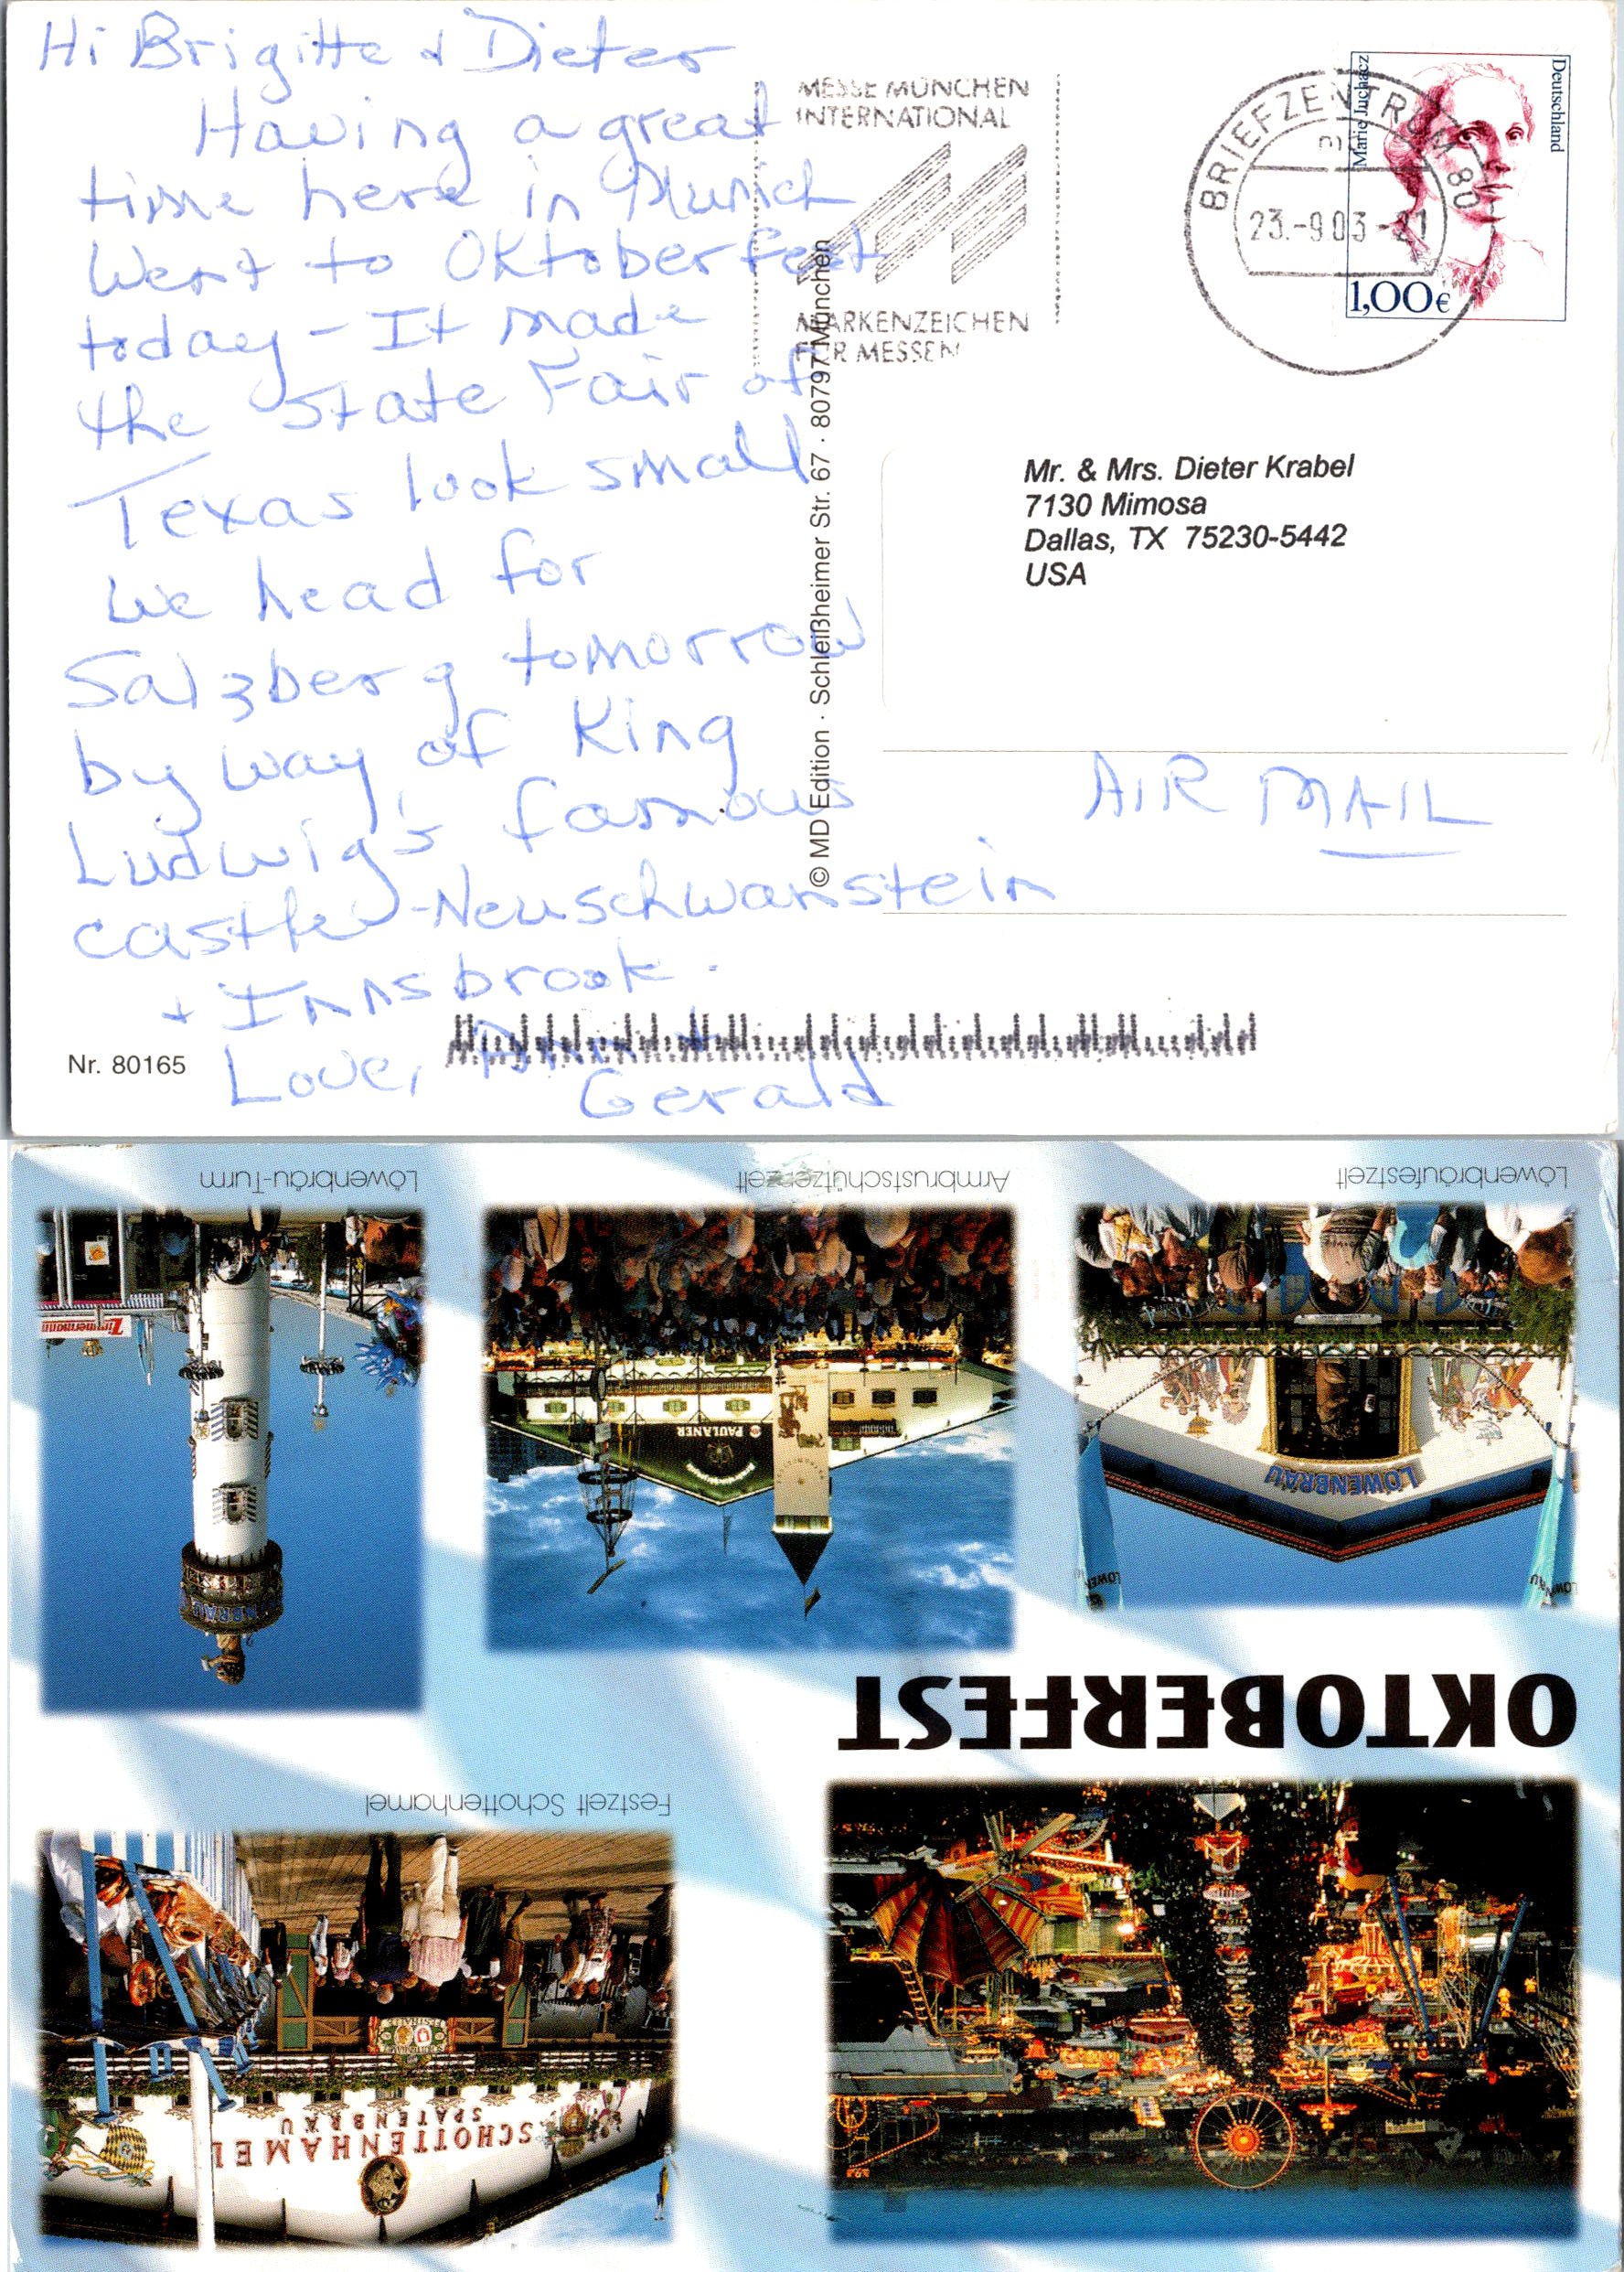 Hi Brigitte + Dieter
Having a great
time here in Munich
Went to Oktoberfest
today - It made
the State Fair of
Texas look small
We head for
Salzberg tomorrow
by way of King
Ludwig's famous
castle - Neuschwanstein
+ Innsbrook.
Love, Ann +
Gerald
Nr. 80165
MESSE MÜNCHEN
INTERNATIONAL
MARKENZEICHEN
DER MESSEN
© MD Edition · Schleißheimer Str. 67 · 80797 München
BRIEFZENTRUM 80
23.-9.03-21
Marie Juchacz
Deutschland
1,00€
Mr. & Mrs. Dieter Krabel
7130 Mimosa
Dallas, TX 75230-5442
USA
AIR MAIL
OKTOBERFEST
Festzelt Schottenhamel
SCHOTTENHAMEL
SPATENBRÄU
Löwenbräufestzelt
LÖWENBRÄU
Armbrustschützenzelt
PAULANER
Löwenbräu-Turm
Zimmermann